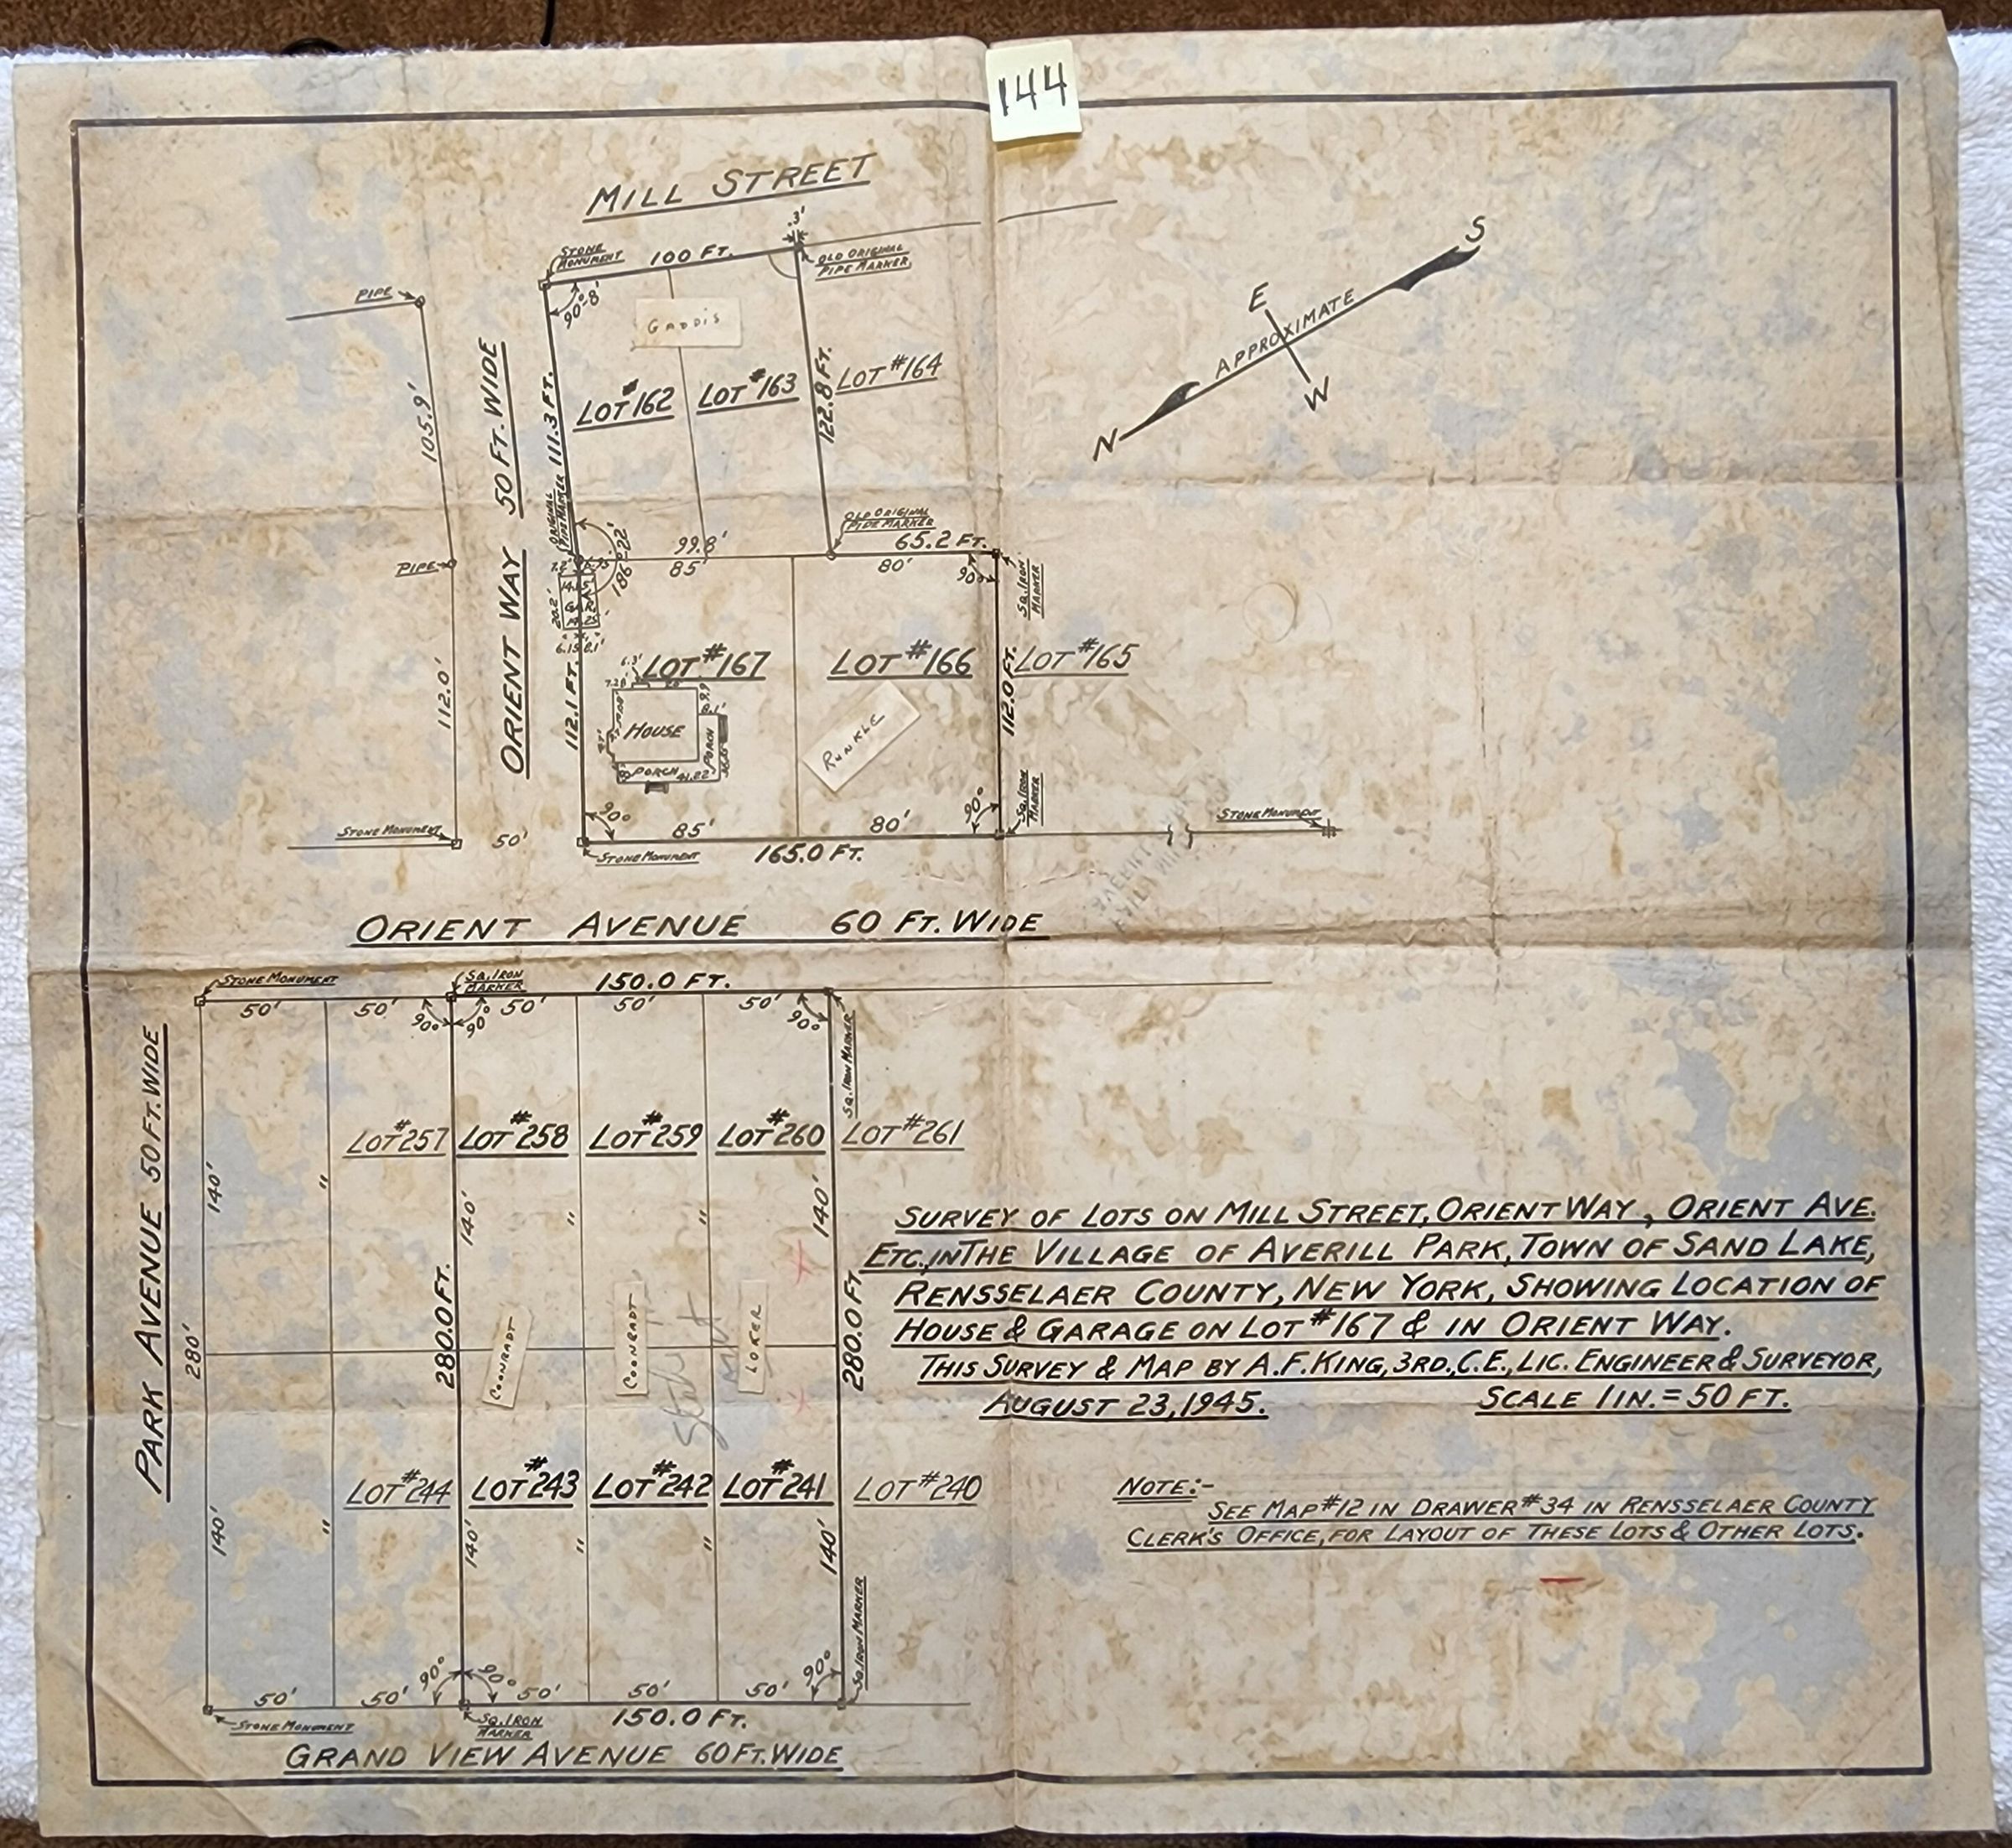 144
MILL STREET
.3'
STONE
MONUMENT
100 FT.
OLD ORIGINAL
PIPE MARKER
90°-8'
PIPE
GADDIS
S
E
APPROXIMATE
W
N
105.9'
ORIENT WAY 50 FT. WIDE
111.3 FT.
LOT #162
LOT #163
122.8 FT.
LOT #164
ORIGINAL
PIPE MARKER
OLD ORIGINAL
PIPE MARKER
186°-22'
99.8'
65.2 FT.
PIPE
85'
80'
90°
SQ. IRON
MARKER
20.2'
6.15'
8.1'
112.0'
112.1 FT.
LOT #167
LOT #166
112.0 FT.
LOT #165
6.3'
HOUSE
PORCH
PORCH
41.22'
RUNKLE
90°
90°
SQ. IRON
MARKER
STONE MONUMENT
50'
85'
80'
STONE MONUMENT
STONE MONUMENT
165.0 FT.
ORIENT AVENUE 60 FT. WIDE
STONE MONUMENT
SQ. IRON
MARKER
150.0 FT.
50'
50'
50'
50'
50'
90°
90°
90°
SQ. IRON MARKER
PARK AVENUE 50 FT. WIDE
LOT #257
LOT #258
LOT #259
LOT #260
LOT #261
140'
"
140'
"
"
140'
280'
280.0 FT.
280.0 FT.
COONRADT
COONRADT
LOKER
SURVEY OF LOTS ON MILL STREET, ORIENT WAY, ORIENT AVE.
ETC., IN THE VILLAGE OF AVERILL PARK, TOWN OF SAND LAKE,
RENSSELAER COUNTY, NEW YORK, SHOWING LOCATION OF
HOUSE & GARAGE ON LOT #167 & IN ORIENT WAY.
THIS SURVEY & MAP BY A. F. KING, 3RD., C.E., LIC. ENGINEER & SURVEYOR,
AUGUST 23, 1945. SCALE 1 IN. = 50 FT.
LOT #244
LOT #243
LOT #242
LOT #241
LOT #240
NOTE:-
SEE MAP #12 IN DRAWER #34 IN RENSSELAER COUNTY
CLERK'S OFFICE, FOR LAYOUT OF THESE LOTS & OTHER LOTS.
140'
"
140'
"
"
140'
SQ. IRON MARKER
90°
90°
90°
50'
50'
50'
50'
50'
STONE MONUMENT
SQ. IRON
MARKER
150.0 FT.
GRAND VIEW AVENUE 60 FT. WIDE